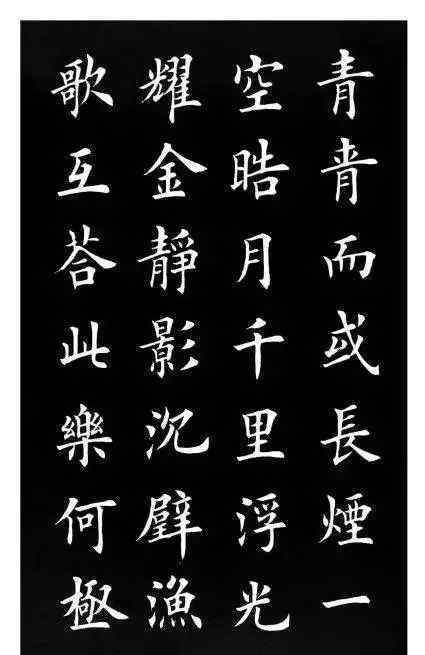 青青而或長煙一
空晧月千里浮光
耀金靜影沉璧漁
歌互荅此樂何極